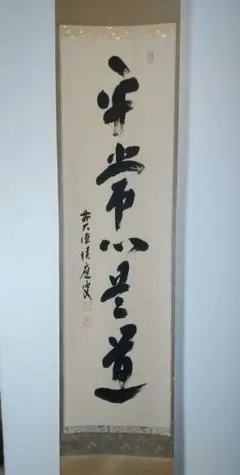 平常心是道
前大徳積應